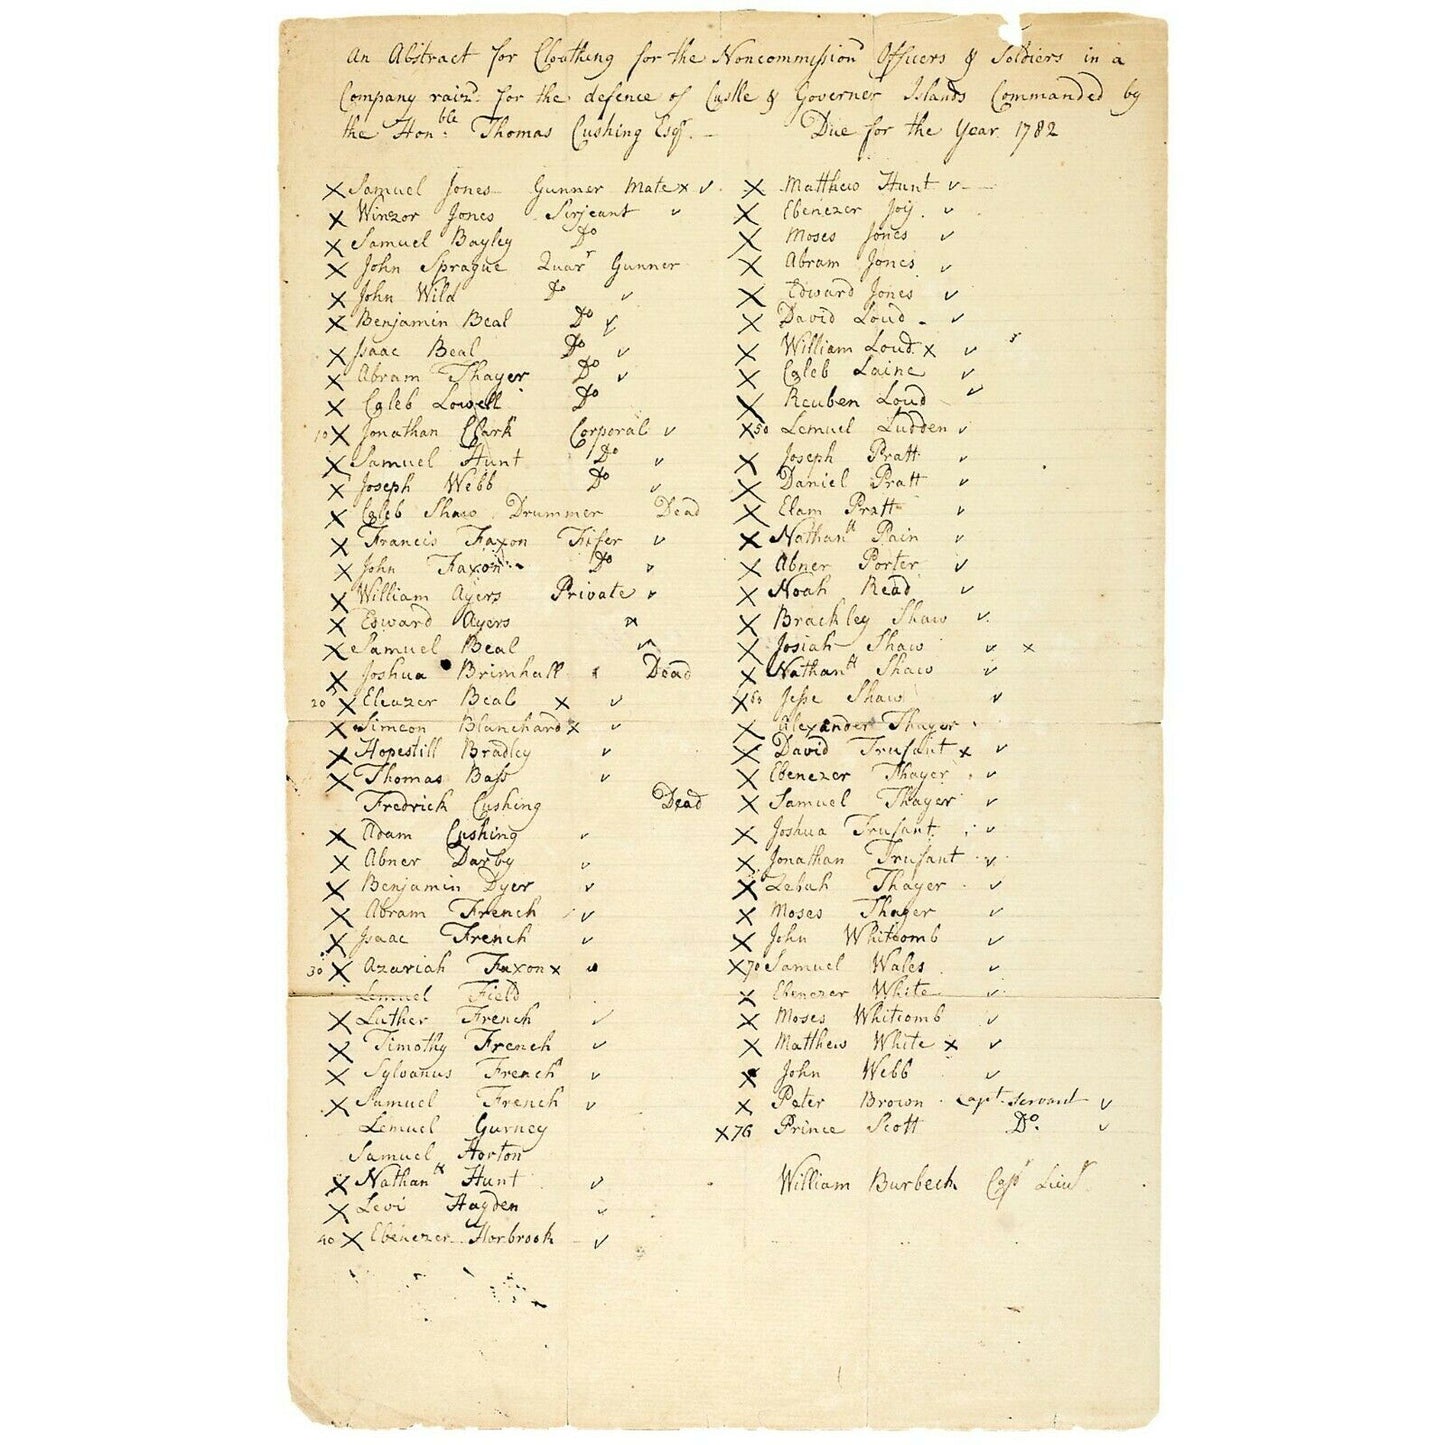 An Abstract for Cloathing for the Noncommission Officers & Soldiers in a
Company raizd for the defence of Castle & Governer Islands Commanded by
the Honble Thomas Cushing Esqr. Due for the Year 1782
X Samuel Jones Gunner Mate x v
X Winzor Jones Serjeant v
X Samuel Bayley Do
X John Sprague Quar r Gunner
X John Wild Do v
X Benjamin Beal Do v
X Isaac Beal Do v
X Abram Thayer Do v
X Caleb Lowell Do
10 X Jonathan Clark Corporal v
X Samuel Hunt Do v
X Joseph Webb Do v
X Caleb Shaw Drummer Dead
X Francis Faxon Fifer v
X John Faxon Do v
X William Ayers Private v
X Edward Ayers
X Samuel Beal
X Joshua Brimhall Dead
20 X Eleazer Beal X v
X Simeon Blanchard x v
X Hopestill Bradley v
X Thomas Bass v
Fredrick Cushing Dead
X Adam Cushing v
X Abner Darby v
X Benjamin Dyer v
X Abram French v
X Isaac French v
30 X Azariah Faxon x
Lemuel Field
X Luther French v
X Timothy French v
X Sylvanus French v
X Samuel French v
Lemuel Gurney
Samuel Horton
X Nathanll Hunt v
X Levi Hayden v
40 X Ebenezer Horbrook v
X Matthew Hunt v
X Ebenezer Joy v
X Moses Jones v
X Abram Jones v
X Edward Jones v
X David Loud v
X William Loud x v
X Caleb Laine v
X Reuben Loud v
X 50 Lemuel Ludden v
X Joseph Pratt v
X Daniel Pratt v
X Elam Pratt v
X Nathanll Pain v
X Abner Porter v
X Noah Read v
X Brackley Shaw v
X Josiah Shaw v x
X Nathanll Shaw v
X 60 Jesse Shaw v
X Alexander Thayer
X David Trusant x v
X Ebenezer Thayer v
X Samuel Thayer v
X Joshua Trusant v
X Jonathan Trusant v
X Zebah Thayer v
X Moses Thayer v
X John Whitcomb v
X 70 Samuel Wales v
X Ebenezer White v
X Moses Whitcomb v
X Matthew White x v
X John Webb v
X Peter Brown Capt. Servant v
X 76 Prince Scott Do. v
William Burbeck Capt Lieut